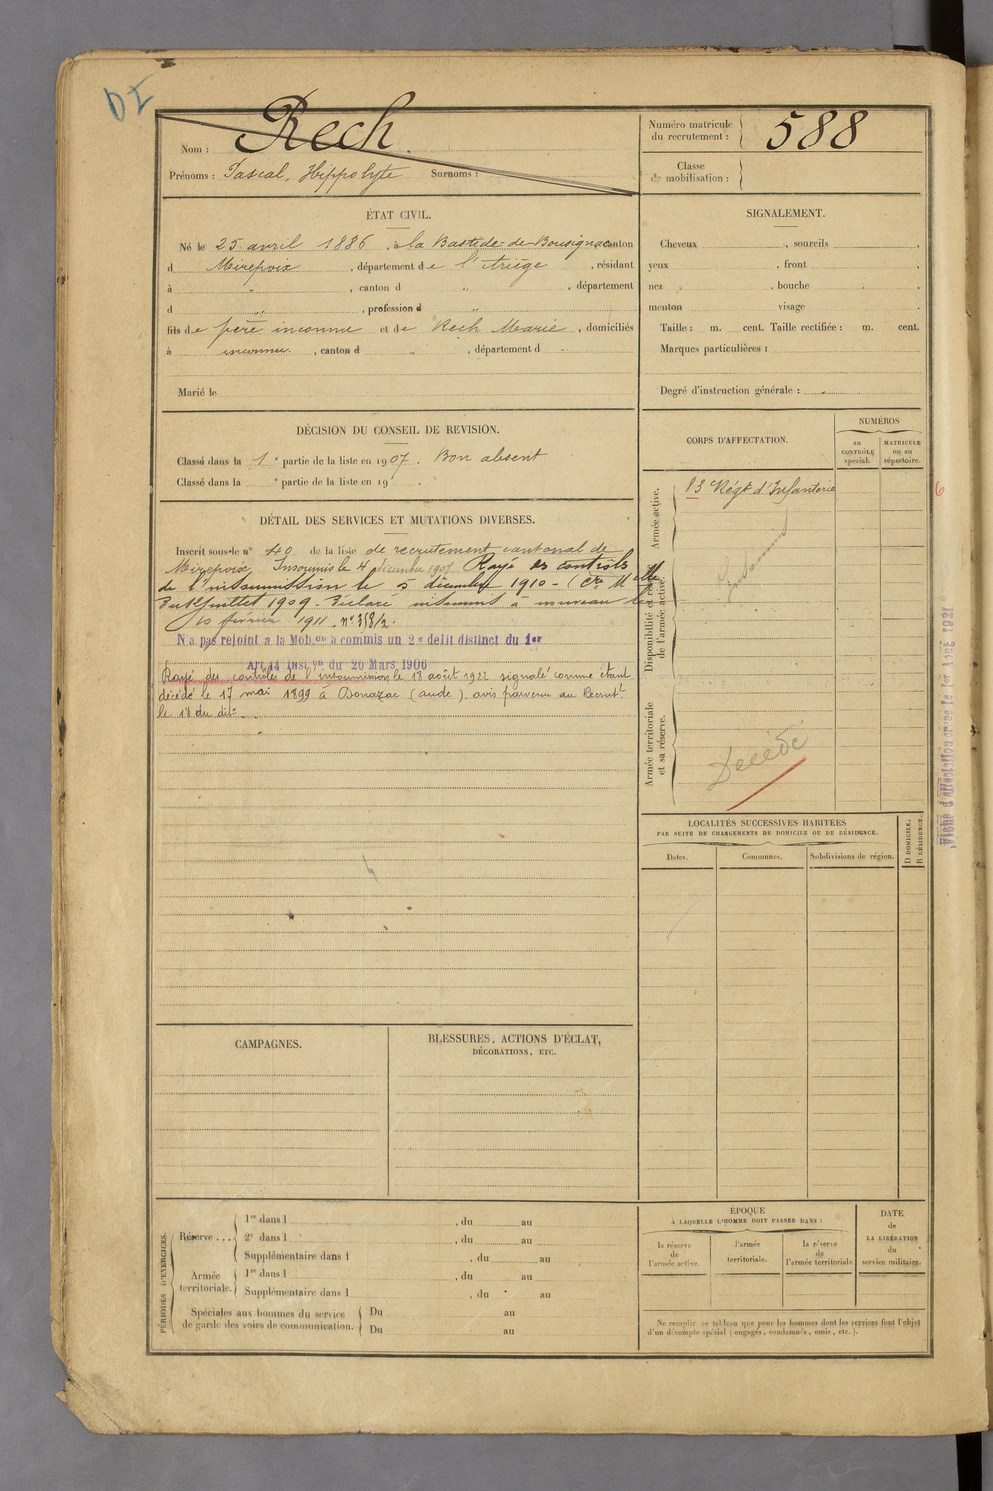 DI
Nom : Rech
Prénoms : Pascal, Hippolyte Surnoms :
Numéro matricule du recrutement : 588
Classe de mobilisation :
ÉTAT CIVIL.
Né le 25 avril 1886, à la Bastide-de-Bousignac canton
d Mirepoix, département de l'Ariège, résidant
à " , canton d " , département
d " , profession d "
fils de père inconnu et de Rech Marie, domiciliés
à inconnu , canton d " , département d
Marié le
SIGNALEMENT.
Cheveux , sourcils .
yeux , front .
nez , bouche .
menton visage .
Taille : m. cent. Taille rectifiée : m. cent.
Marques particulières :
Degré d'instruction générale :
DÉCISION DU CONSEIL DE REVISION.
Classé dans la 1e partie de la liste en 1907. Bon absent
Classé dans la e partie de la liste en 19 .
DÉTAIL DES SERVICES ET MUTATIONS DIVERSES.
Inscrit sous le n° 40 de la liste de recrutement cantonal de
Mirepoix. Insoumis le 4 décembre 1907. Rayé des contrôles
de l'insoumission le 5 décembre 1910 - (Cre Mlle
du juillet 1909. Déclaré insoumis à nouveau le
10 février 1911. n° 358/2.
N'a pas rejoint à la Mobon a commis un 2e délit distinct du 1er
Art 14 Instyn du 20 Mars 1906
Rayé des contrôles de l'insoumission le 18 août 1922 signalé comme étant
décédé le 17 mai 1899 à Donazac (aude), avis parvenu au Recrutt
le 18 du dit
CORPS D'AFFECTATION.
NUMÉROS
au CONTRÔLE spécial.
MATRICULE ou au répertoire.
Armée active.
83 Régt d'Infanterie
6
Insoumis
Disponibilité et réserve de l'armée active.
Armée territoriale et sa réserve.
Décédé
Fiche d'affectation créée le 1er Août 1921
LOCALITÉS SUCCESSIVES HABITÉES
PAR SUITE DE CHANGEMENTS DE DOMICILE OU DE RÉSIDENCE.
Dates. Communes. Subdivisions de région.
D DOMICILE. R RÉSIDENCE.
CAMPAGNES.
BLESSURES, ACTIONS D'ÉCLAT,
DÉCORATIONS, ETC.
PÉRIODES D'EXERCICES.
Réserve ...
1re dans l , du au
2e dans l , du au
Supplémentaire dans l , du au
Armée territoriale.
1re dans l , du au
Supplémentaire dans l , du au
Spéciales aux hommes du service
de garde des voies de communication.
Du au
Du au
ÉPOQUE
À LAQUELLE L'HOMME DOIT PASSER DANS :
la réserve de l'armée active.
l'armée territoriale.
la réserve de l'armée territoriale
DATE de LA LIBÉRATION du service militaire.
Ne remplir ce tableau que pour les hommes dont les services font l'objet
d'un décompte spécial (engagés, condamnés, omis, etc.).